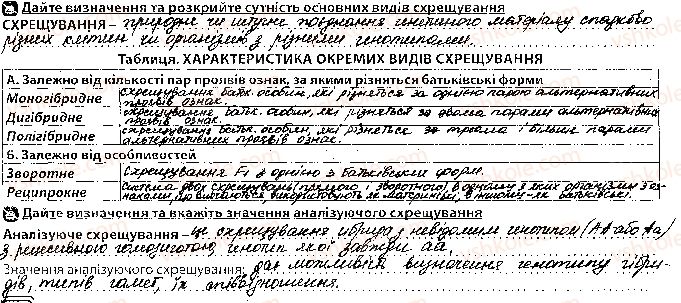 Дайте визначення та розкрийте сутність основних видів схрещування
СХРЕЩУВАННЯ – природне чи штучне поєднання генетичного матеріалу спадково
різних клітин чи організмів з різними генотипами.
Таблиця. ХАРАКТЕРИСТИКА ОКРЕМИХ ВИДІВ СХРЕЩУВАННЯ
А. Залежно від кількості пар проявів ознак, за якими різняться батьківські форми
Моногібридне схрещування батьк. особин, які різняться за однією парою альтернативних
проявів ознак.
Дигібридне схрещування батьк. особин, які різняться за двома парами альтернативних
проявів ознак.
Полігібридне схрещування батьк. особин, які різняться за трьома і більше парами
альтернативних проявів ознак.
Б. Залежно від особливостей
Зворотне Схрещування F1 з однією з батьківських форм.
Реципрокне Система двох схрещувань (прямого і зворотного) в одному з яких організми з оз-
наками, що вивчаються використовують як материнські, в іншому – як батьківські.
Дайте визначення та вкажіть значення аналізуючого схрещування
Аналізуюче схрещування – це схрещування гібрида з невідомим генотипом (АА або Аа)
з рецесивною гомозиготою, генотип якої завжди аа.
Значення аналізуючого схрещування: дає можливість визначення генотипу гібри-
дів, типів гамет, їх співвідношення.